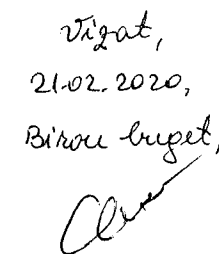 Vizat,
21.02.2020,
Birou buget,